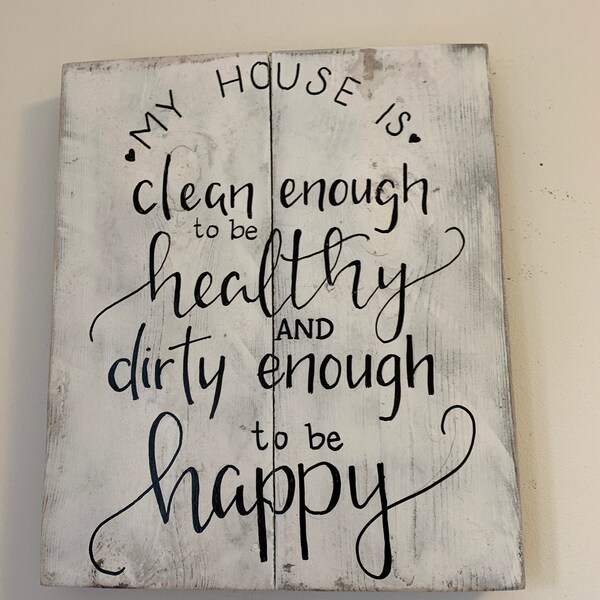 MY HOUSE IS
clean enough
to be
healthy
AND
dirty enough
to be
happy